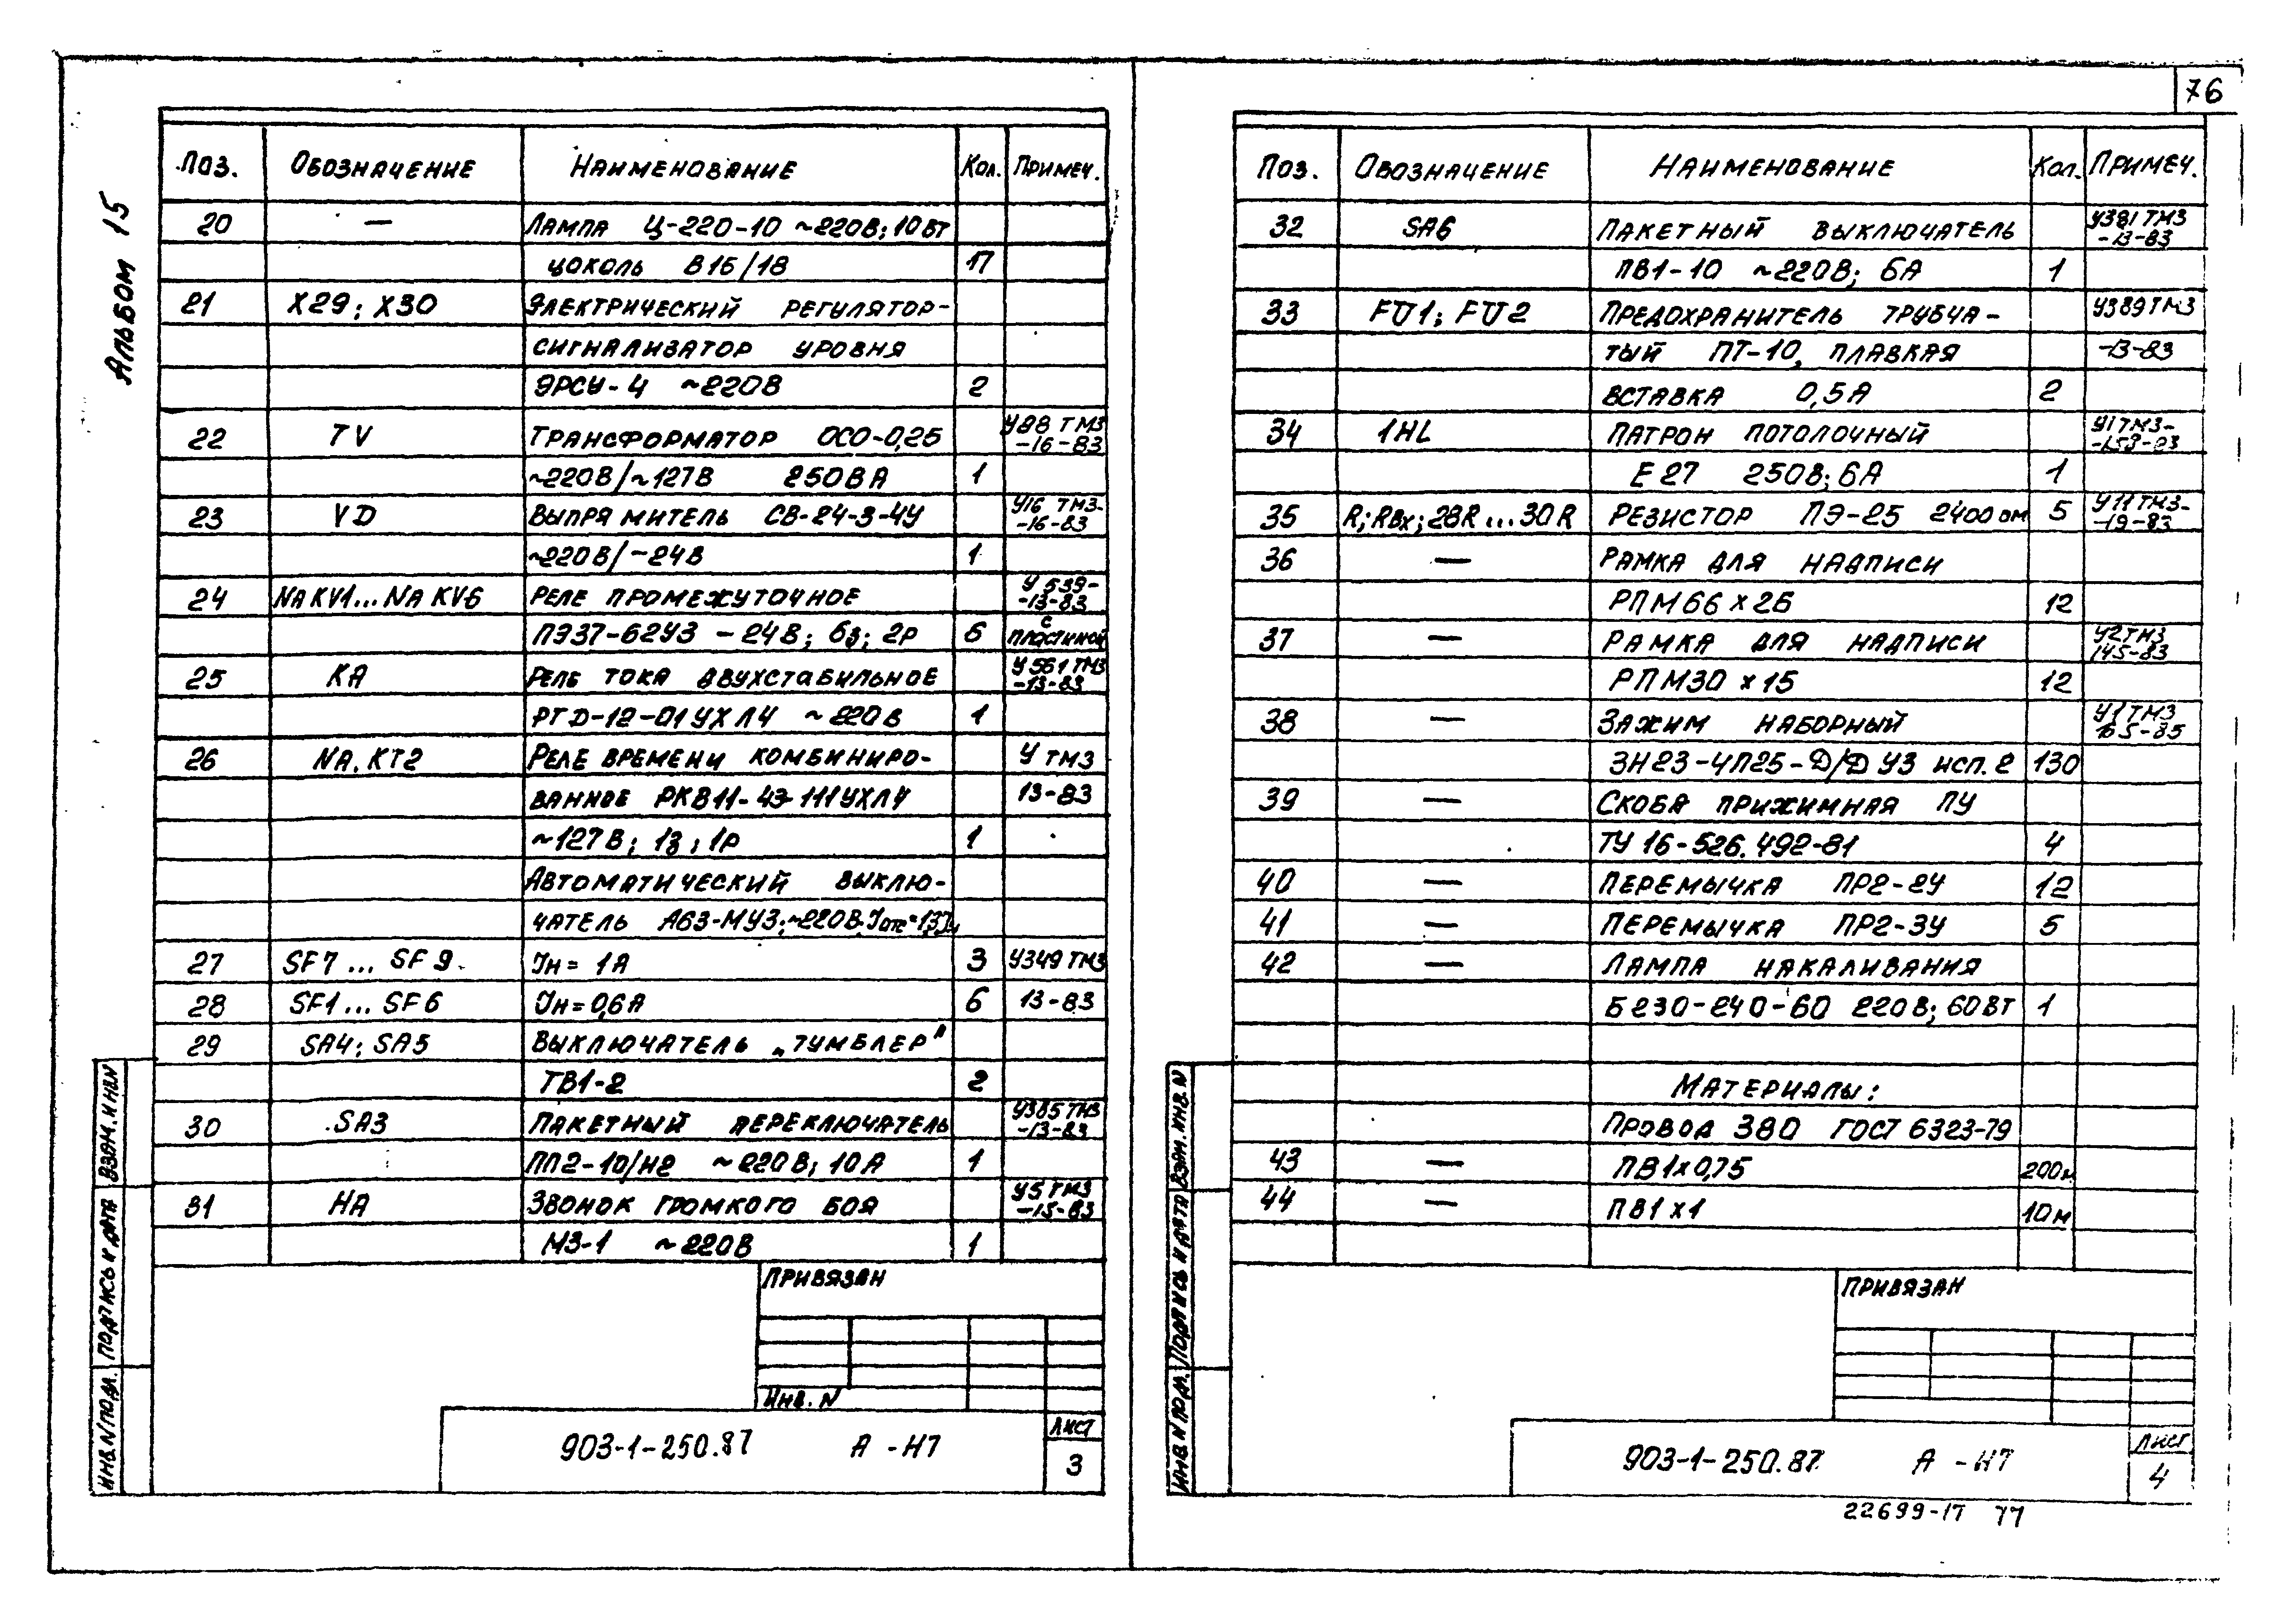 76
Альбом 15
Поз. Обозначение Наименование Кол. Примеч.
20 — Лампа Ц-220-10 ~220В; 10Вт
цоколь В15/18 17
21 Х29; Х30 Электрический регулятор-
сигнализатор уровня
ЭРСУ-4 ~220В 2
22 TV Трансформатор ОСО-0,25 У88 ТМЗ
-16-83
~220В/~127В 250ВА 1
23 VD Выпрямитель СВ-24-3-4У У16 ТМЗ-
-16-83
~220В/-24В 1
24 NA KV1...NA KV6 Реле промежуточное У 539-
-13-83
ПЭ37-62У3 -24В; 6з; 2р 6 с
пластиной
25 КА Реле тока двухстабильное У561 ТМЗ
-13-83
РТД-12-01УХЛ4 ~220В 1
26 NA.КТ2 Реле времени комбиниро- У ТМЗ
ванное РКВ11-43-111УХЛ4 13-83
~127В; 1з; 1р 1
Автоматический выклю-
чатель А63-МУ3; ~220В; Iотс=1,3Iн
27 SF7 ... SF9 Iн = 1А 3 У349 ТМЗ
28 SF1 ... SF6 Iн = 0,6А 6 13-83
29 SA4; SA5 Выключатель „тумблер"
ТВ1-2 2
30 SA3 Пакетный переключатель У385 ТМЗ
-13-83
ПП2-10/Н2 ~220В; 10А 1
31 НА Звонок громкого боя У5 ТМЗ
-15-83
МЗ-1 ~220В 1
Привязан
Инв. N
903-1-250.87 А -Н7
Лист
3
Инв. N подл. Подпись и дата Взам. инв. N
Поз. Обозначение Наименование Кол. Примеч.
32 SA6 Пакетный выключатель У381 ТМЗ
-13-83
ПВ1-10 ~220В; 6А 1
33 FU1; FU2 Предохранитель трубча- У389 ТМЗ
тый ПТ-10, плавкая -13-83
вставка 0,5А 2
34 1HL Патрон потолочный У1 ТМЗ-
-158-83
Е27 250В; 6А 1
35 R; Rвх; 28R...30R Резистор ПЭ-25 2400 ом 5 У11 ТМЗ-
-19-83
36 — Рамка для надписи
РПМ66 х 26 12
37 — Рамка для надписи У2 ТМЗ
145-83
РПМ30 х 15 12
38 — Зажим наборный У1 ТМЗ
165-85
ЗН23-4П25-Д/Д У3 исп. 2 130
39 — Скоба прижимная ПУ
ТУ 16-526.492-81 4
40 — Перемычка ПР2-2У 12
41 — Перемычка ПР2-3У 5
42 — Лампа накаливания
Б230-240-60 220В; 60Вт 1
Материалы:
Провод 380 ГОСТ 6323-79
43 — ПВ1х0,75 200м
44 — ПВ1х1 10м
Привязан
903-1-250.87 А -Н7
Лист
4
Инв. N подл. Подпись и дата Взам. инв. N
22699-17 77